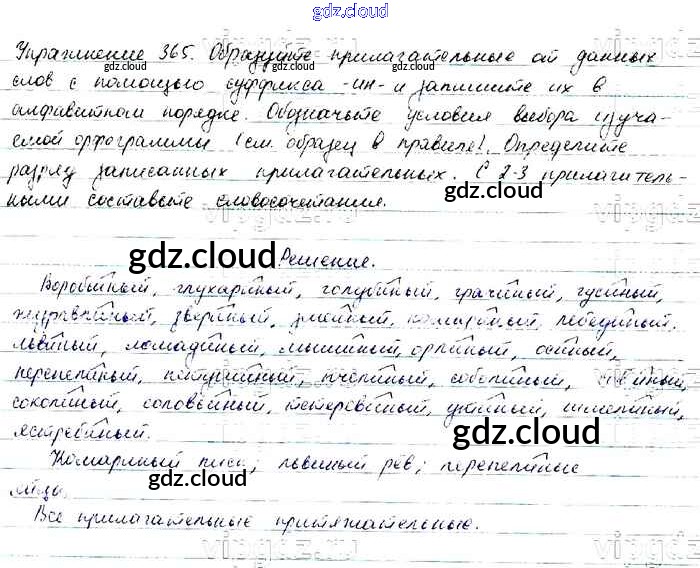 gdz.cloud
Упражнение 365. Образуйте прилагательные от данных
слов с помощью суффикса -ин- и запишите их в
алфавитном порядке. Обозначьте условия выбора изуча-
емой орфограммы (см. образец в правиле). Определите
разряд записанных прилагательных. С 2-3 прилагатель-
ными составьте словосочетания.
gdz.cloud Решение.
Воробьиный, глухариный, голубиный, грачиный, гусиный,
журавлиный, звериный, змеиный, комариный, лебединый,
львиный, лошадиный, мышиный, орлиный, осиный,
перепелиный, петушиный, пчелиный, соболиный, совиный,
соколиный, соловьиный, тетеревиный, утиный, шмелиный,
ястребиный.
gdz.cloud
Комариный писк; львиный рёв; перепелиные
яйца.
gdz.cloud
Все прилагательные притяжательные.